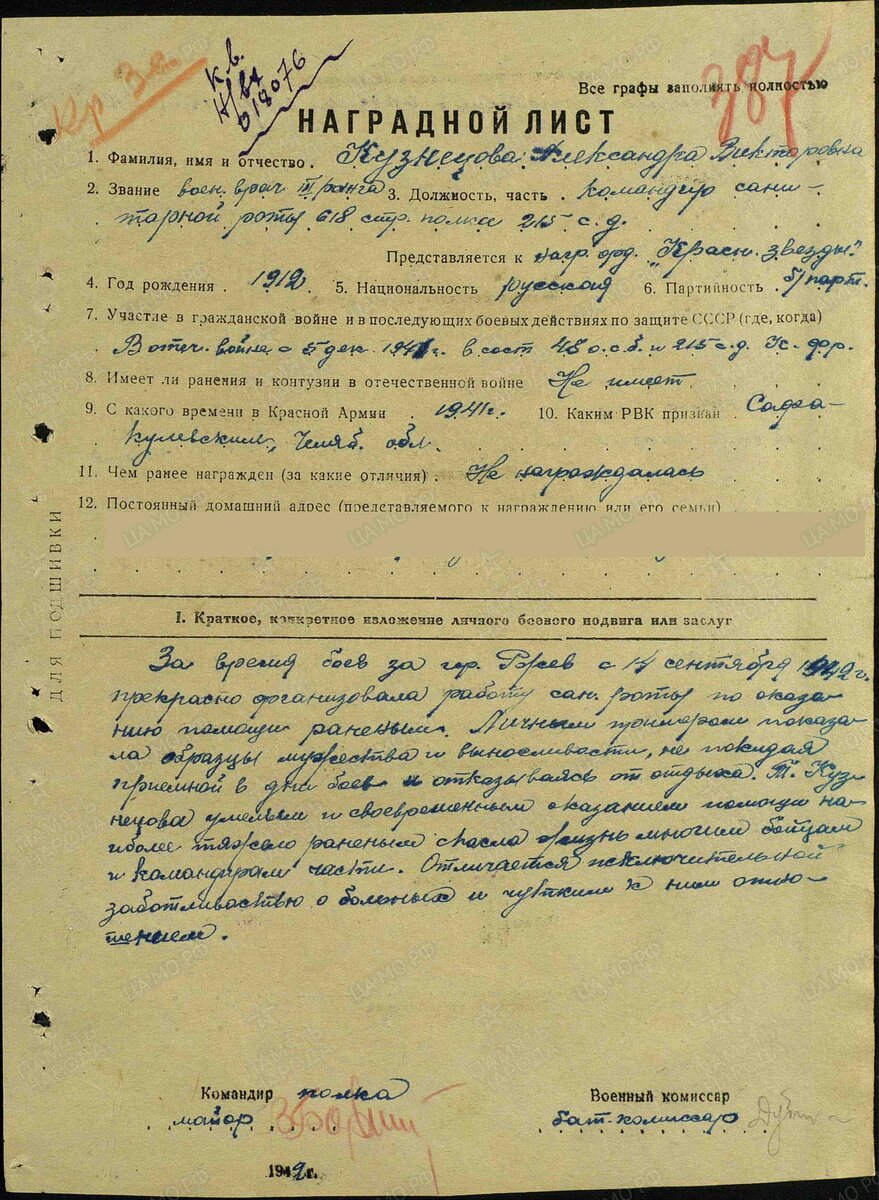 Кр. Зв.
К.В.
618076
387
Все графы заполнять полностью
НАГРАДНОЙ ЛИСТ
1. Фамилия, имя и отчество. Кузнецова Александра Викторовна
2. Звание воен. врач III ранга 3. Должность, часть. командир сани-
тарной роты 618 стр. полка 215 с.д.
Представляется к нагр. орд. "Красн. звезды".
4. Год рождения. 1912. 5. Национальность русская 6. Партийность. б/парт.
7. Участие в гражданской войне и в последующих боевых действиях по защите СССР (где, когда)
В отеч. войне с 5 дек. 1941г. в сост 48 о.с.б. и 215 с.д.
8. Имеет ли ранения и контузии в отечественной войне Не имеет
9. С какого времени в Красной Армии. 1941г. 10. Каким РВК призван. Сафа-
кулевским, Челяб. обл.
11. Чем ранее награжден (за какие отличия). Не награждалась
12. Постоянный домашний адрес (представляемого к награждению или его семьи)
ДЛЯ ПОДШИВКИ
I. Краткое, конкретное изложение личного боевого подвига или заслуг
За время боев за гор. Ржев с 14 сентября 1942г.
прекрасно организовала работу сан. роты по оказа-
нию помощи раненым. Личным примером показа-
ла образцы мужества и выносливости, не покидая
приемной в дни боев и отказываясь от отдыха. Т. Куз-
нецова умелым и своевременным оказанием помощи на-
иболее тяжело раненым спасла жизнь многим бойцам
и командирам части. Отличается исключительной
заботливостью о больных и чутким к ним отно-
шением.
Командир полка
Военный комиссар
майор
бат. комиссар
1942г.
ЦАМО.РФ